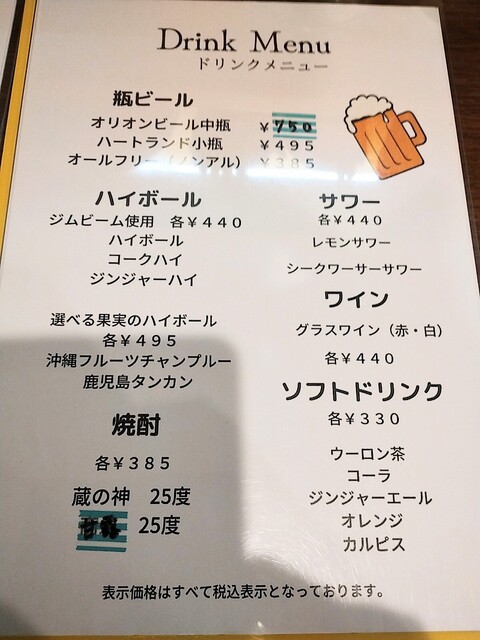 Drink Menu
ドリンクメニュー
瓶ビール
オリオンビール中瓶 ￥750
ハートランド小瓶 ￥495
オールフリー（ノンアル） ￥385
ハイボール
ジムビーム使用 各￥440
ハイボール
コークハイ
ジンジャーハイ
選べる果実のハイボール
各￥495
沖縄フルーツチャンプルー
鹿児島タンカン
焼酎
各￥385
蔵の神 25度
25度
サワー
各￥440
レモンサワー
シークワーサーサワー
ワイン
グラスワイン（赤・白）
各￥440
ソフトドリンク
各￥330
ウーロン茶
コーラ
ジンジャーエール
オレンジ
カルピス
表示価格はすべて税込表示となっております。